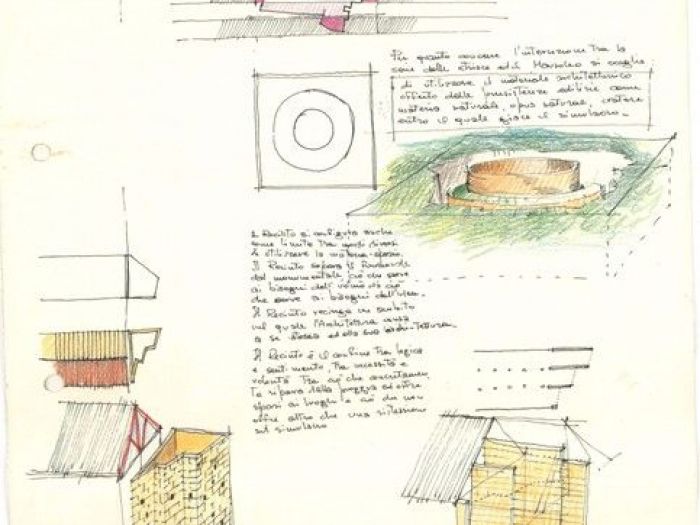 Per quanto concerne l'interruzione tra la
zona delle chiese ed il Mausoleo si sceglie
di utilizzare il materiale architettonico
offerto dalle preesistenze edilizie come
materia naturale, opus naturae, cratere
entro il quale giace il simulacro.
Il Recinto si configura anche
come limite tra modi diversi
di utilizzare la materia-spazio.
Il Recinto separa il Funzionale
dal monumentale, ciò che serve
ai bisogni dell'uomo da ciò
che serve ai bisogni dell'
Il Recinto recinge un ambito
nel quale l'Architettura pensa
a se stessa ed alla sua architettura.
Il Recinto è il confine tra logica
e sentimento, tra necessità e
volontà tra ciò che
ripara dalla pioggia ed offre
spazi ai luoghi e ciò che non
offre altro che una riflessione
sul simulacro